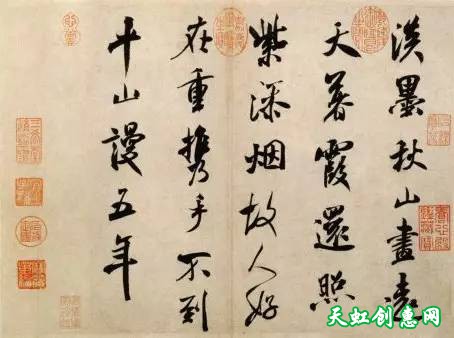 淡墨秋山畫遠
天暮霞還照
紫添烟故人好
在重攜手不到
平山謾五年
天虹创惠网